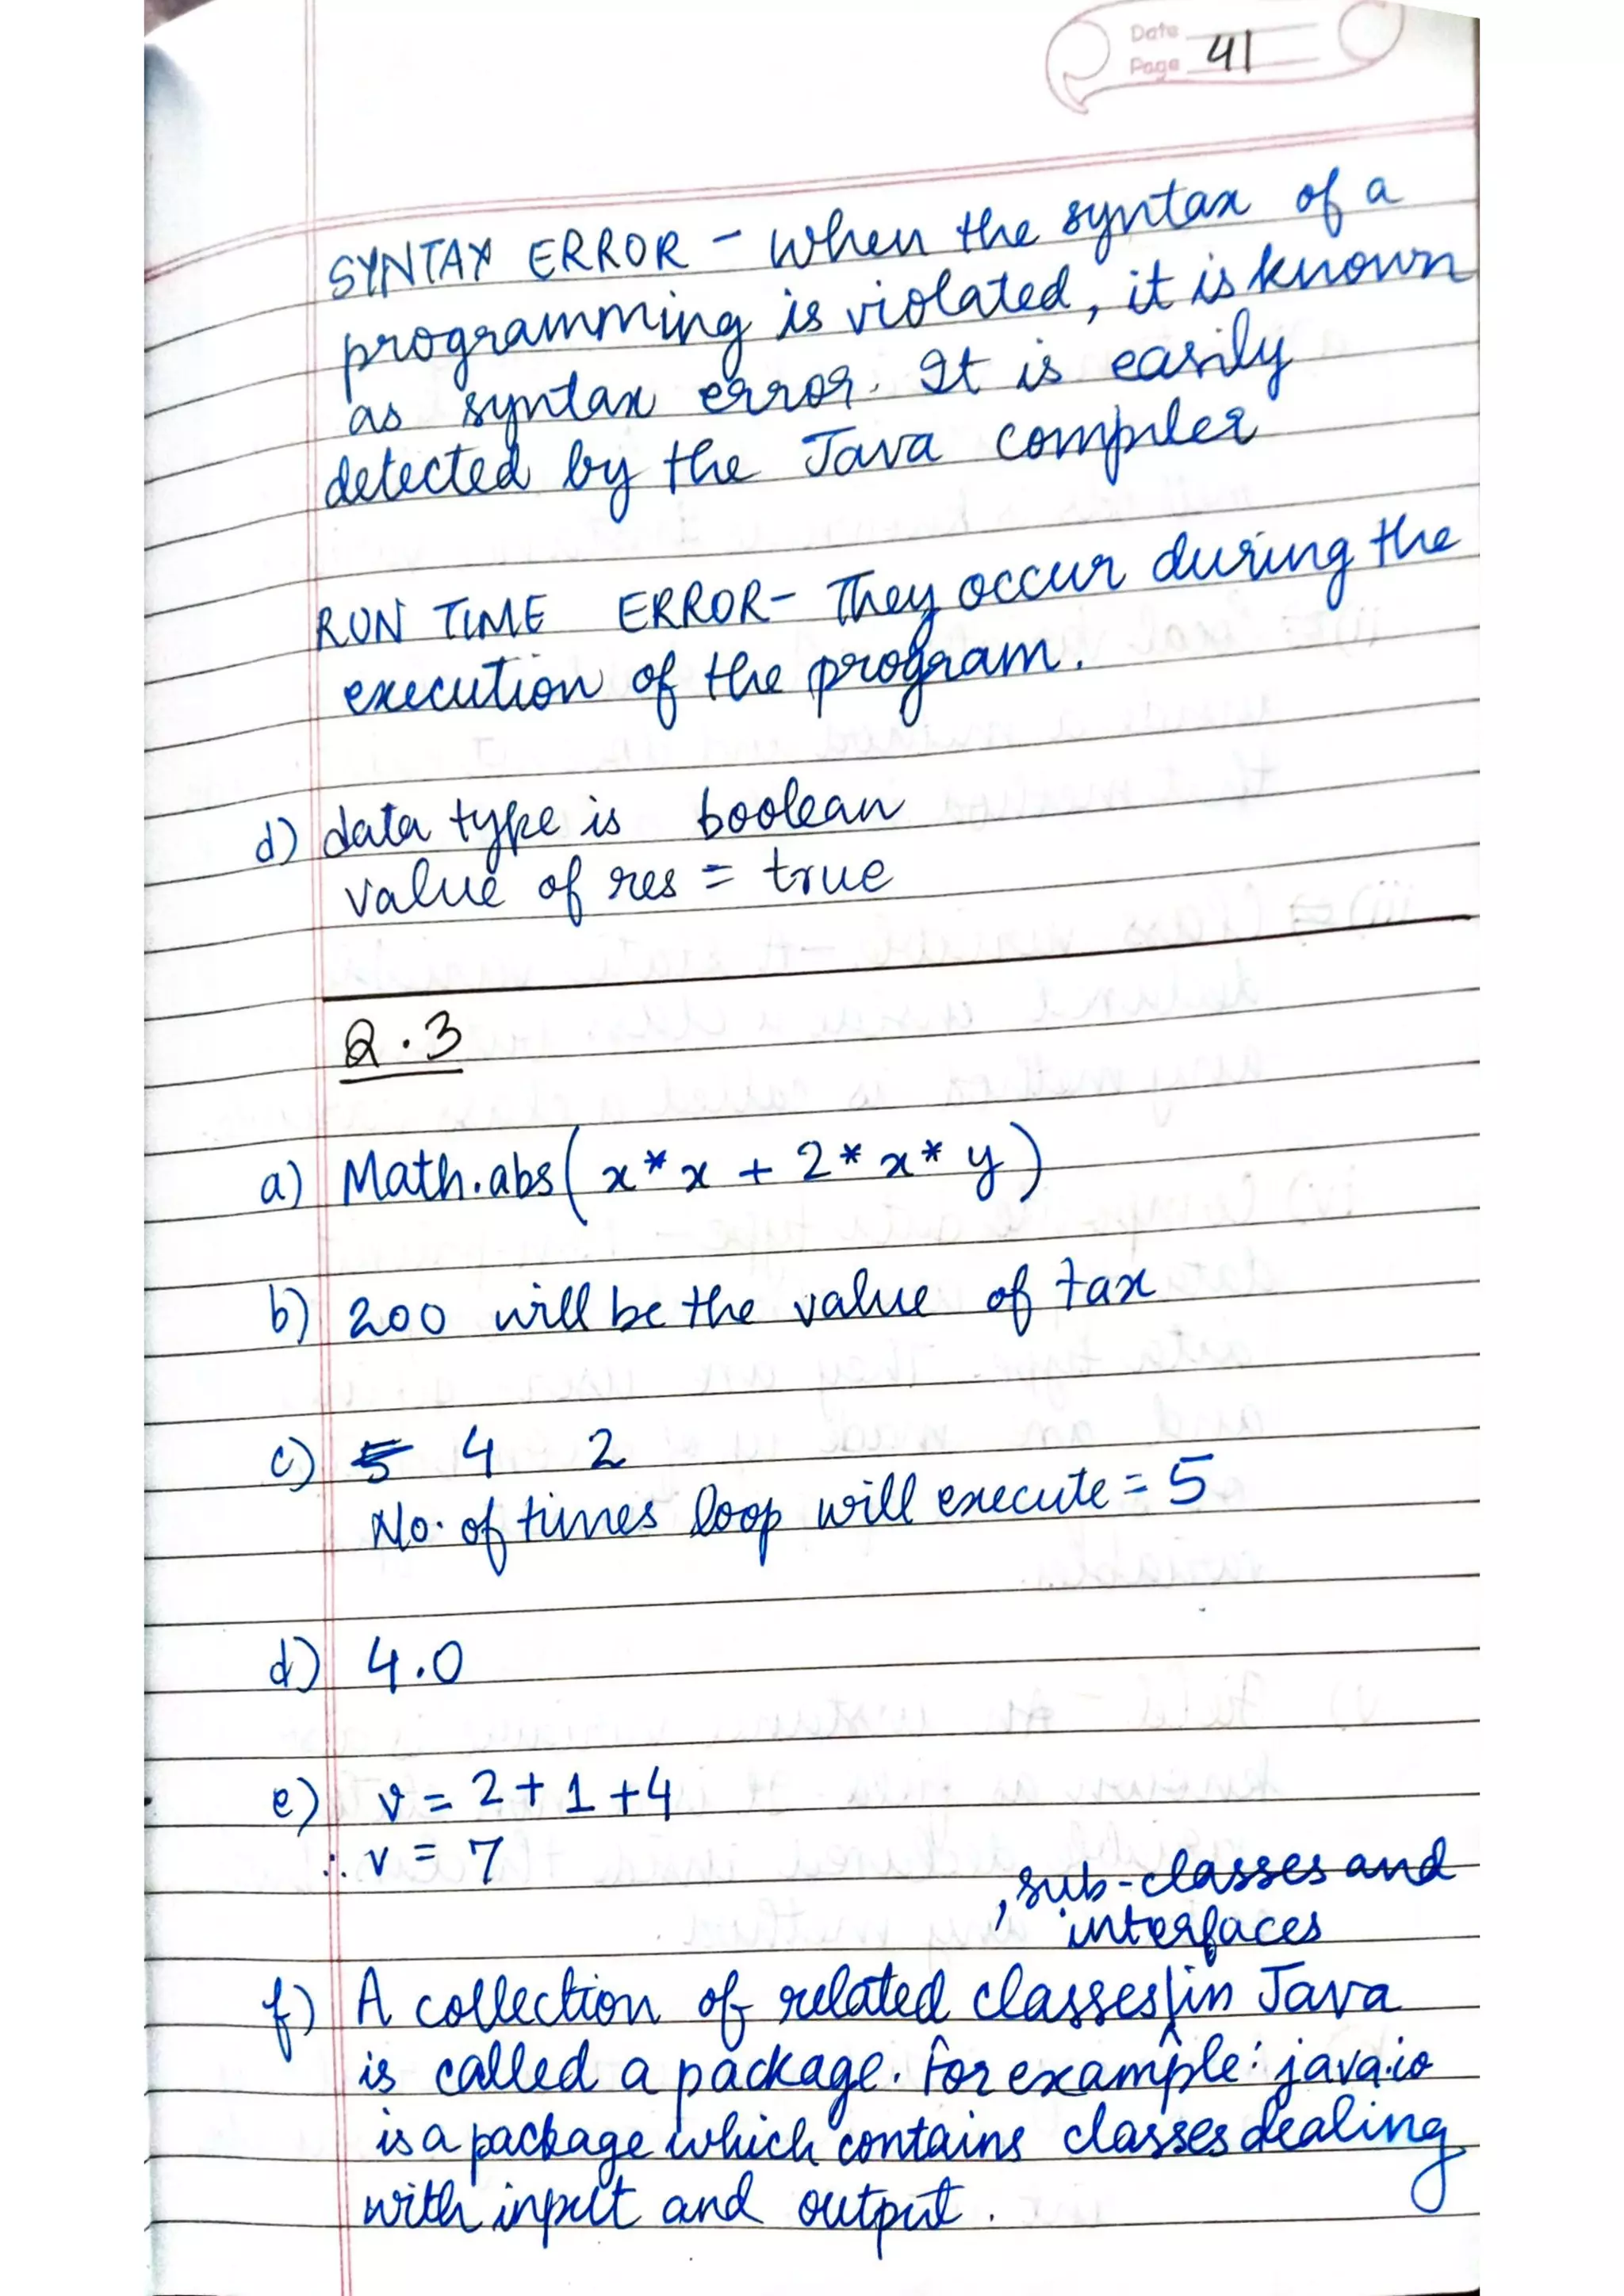 Date
Page 41
SYNTAX ERROR - When the syntax of a
programming is violated, it is known
as syntax error. It is easily
detected by the Java compiler
RUN TIME ERROR - They occur during the
execution of the program.
d) data type is boolean
value of res = true
Q.3
a) Math.abs( x*x + 2*x*y )
b) 200 will be the value of tax
c) 5 4 2
No. of times loop will execute = 5
d) 4.0
e) v = 2 + 1 + 4
∴ v = 7
, sub-classes and
interfaces
f) A collection of related classes in Java
is called a package. For example: java.io
is a package which contains classes dealing
with input and output.